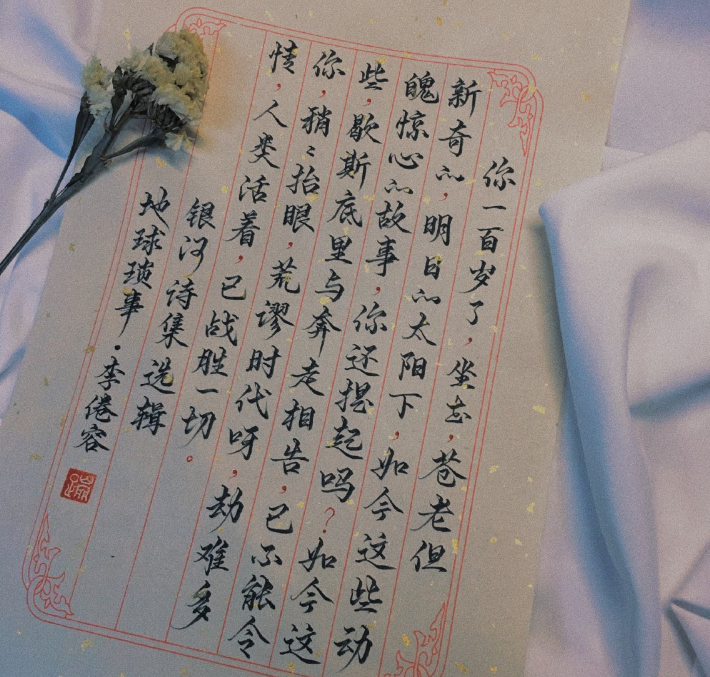 你一百岁了，坐在，苍老但
新奇的，明日的太阳下，如今这些动
魄惊心的故事，你还提起吗？如今这
些，歇斯底里与奔走相告，已不能令
你，稍〻抬眼，荒谬时代呀，劫难多
情，人类活着，已战胜一切。
银河诗集选辑
地球琐事·李倦容